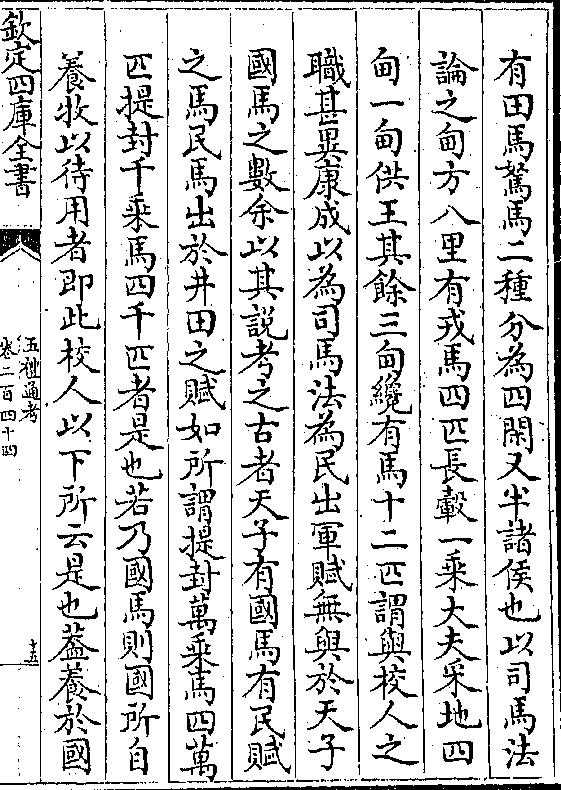 有田馬駑馬二種分為四閑又半諸侯也以司馬法
論之甸方八里有戎馬四匹長轂一乘大夫采地四
甸一甸供王其餘三甸纔有馬十二匹謂與校人之
職甚異康成以為司馬法為民出軍賦無與於天子
國馬之數余以其説考之古者天子有國馬有民賦
之馬民馬出於井田之賦如所謂提封萬乘馬四萬
匹提封千乘馬四千匹者是也若乃國馬則國所自
養牧以待用者即此校人以下所云是也葢養於國
欽定四庫全書
五禮通考
卷二百四十四
十五